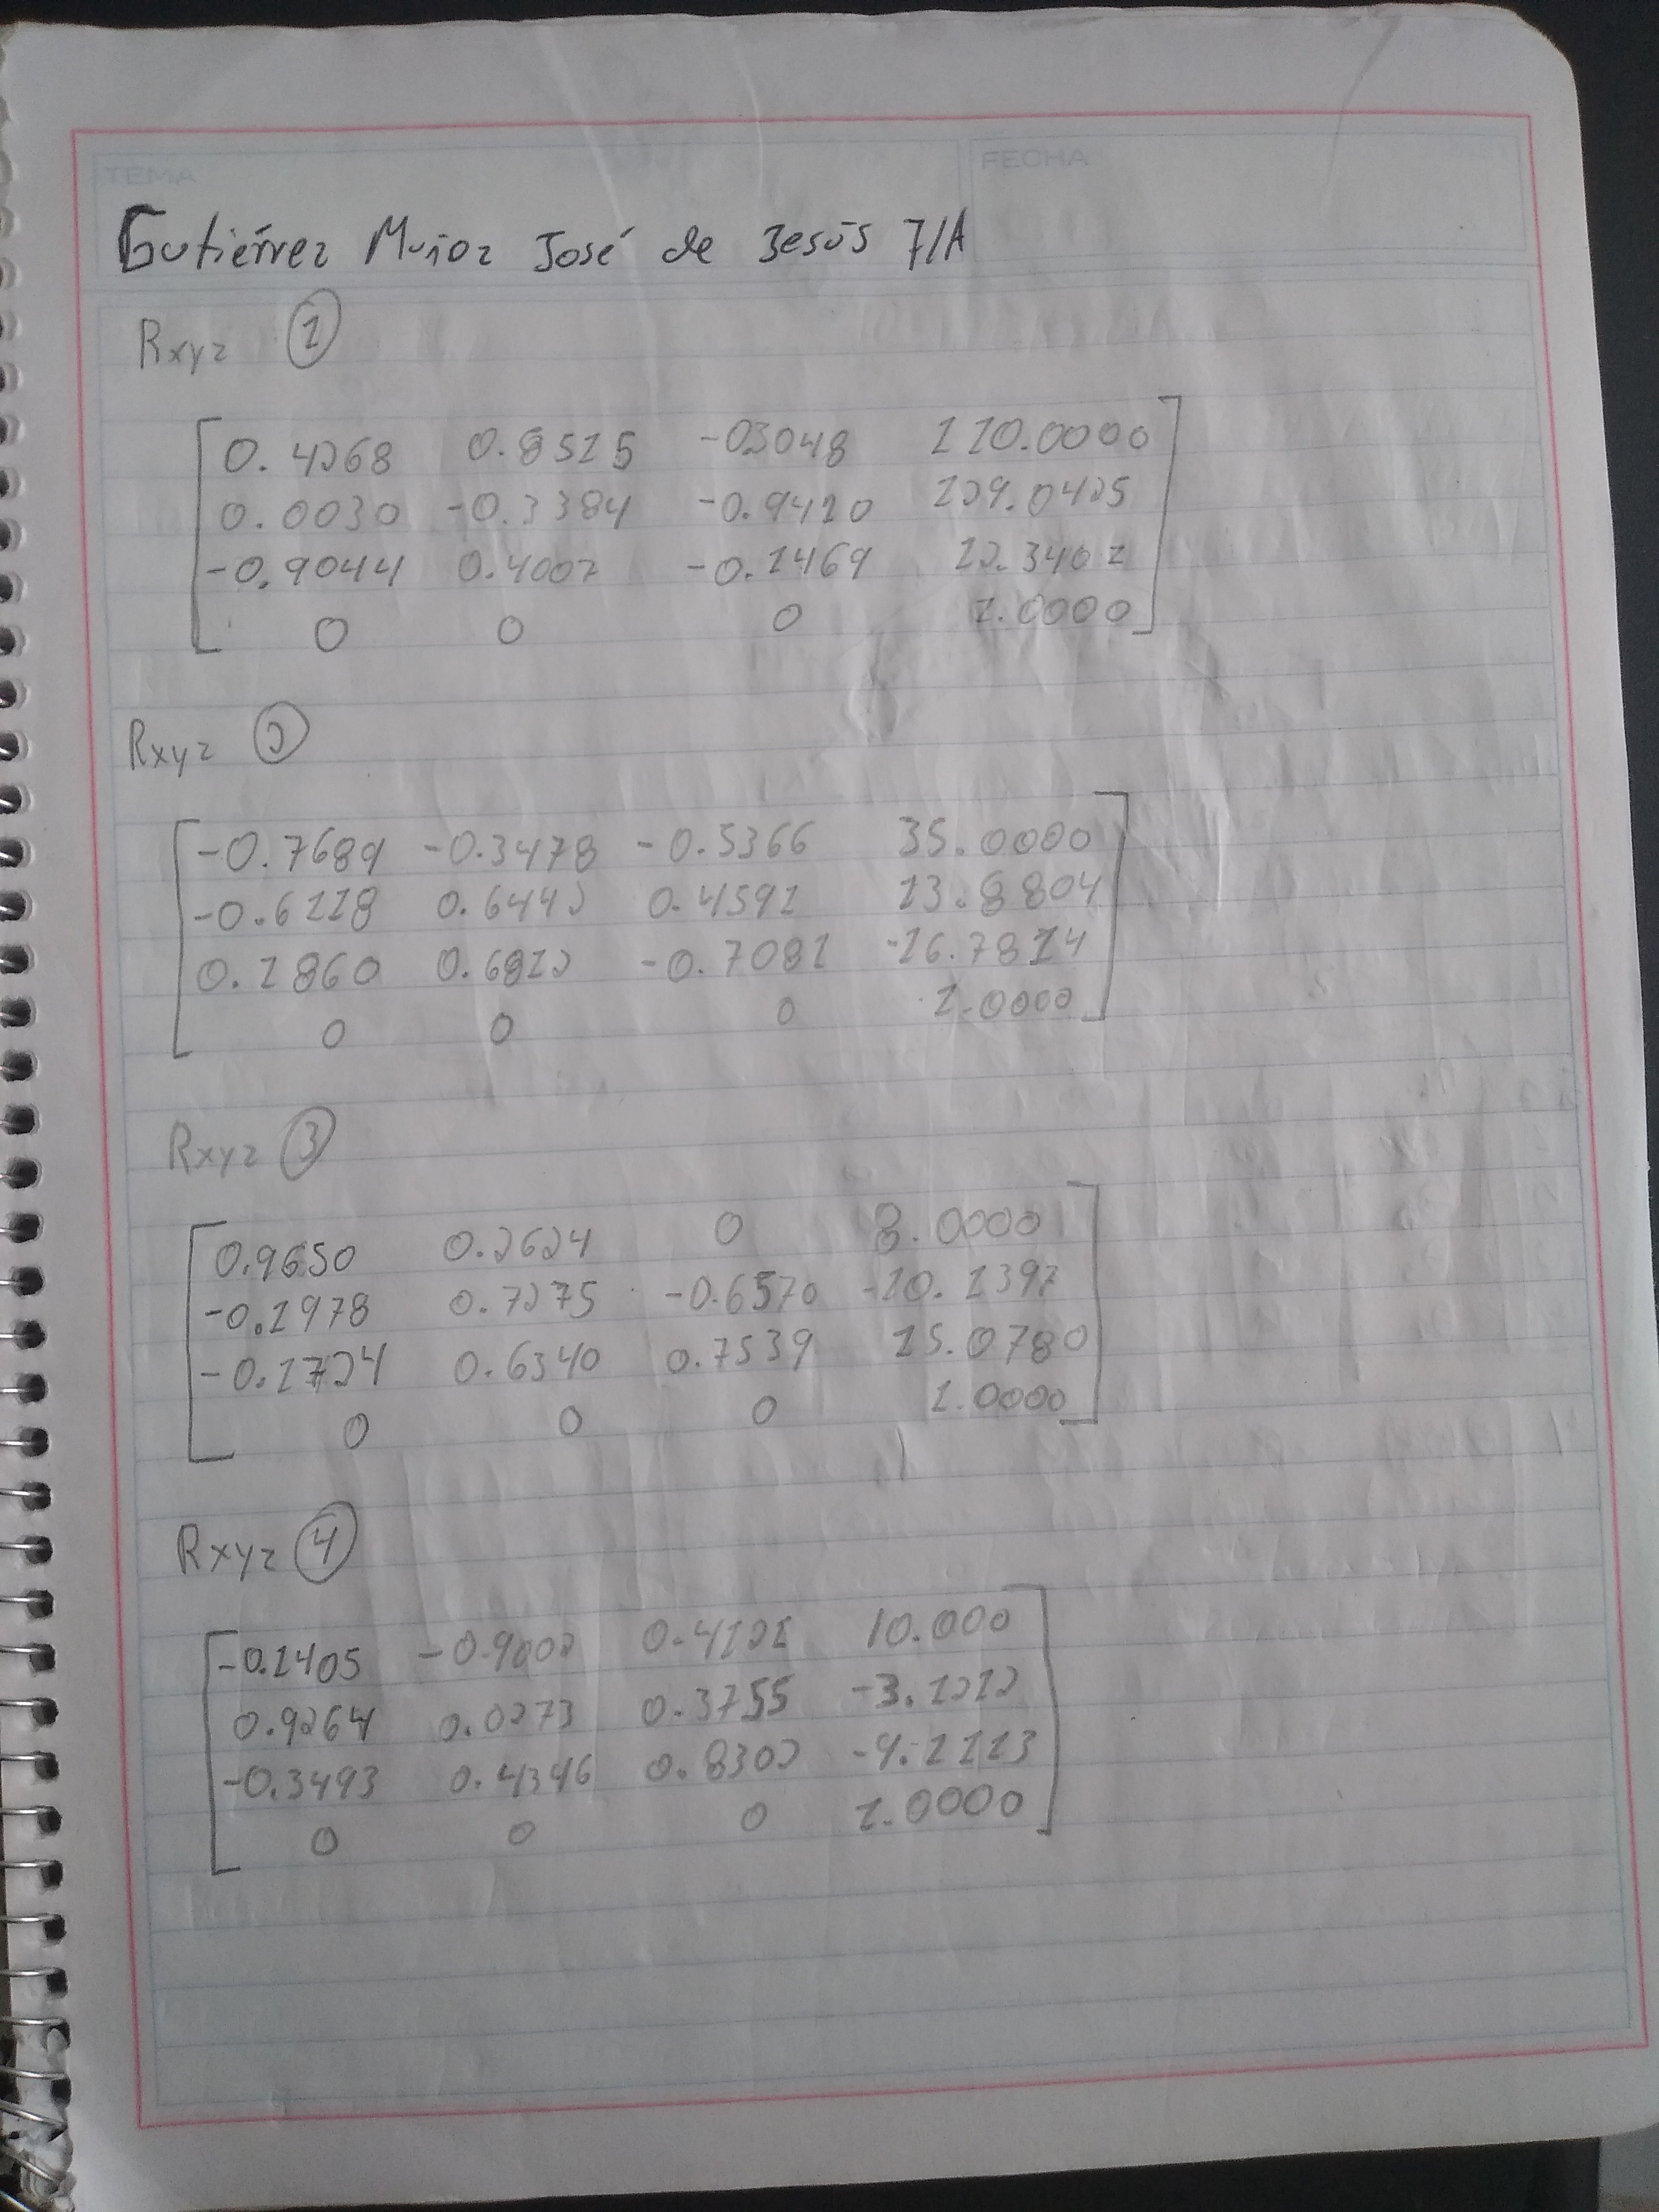 TEMA
FECHA
Gutiérrez Muñoz José de Jesús 7/A
Rxyz 1
0.4268 0.8515 -03048 110.0000
0.0030 -0.3384 -0.9410 129.0425
-0.9044 0.4007 -0.1469 12.3402
0 0 0 1.0000
Rxyz 2
-0.7689 -0.3478 -0.5366 35.0000
-0.6118 0.6442 0.4591 13.8804
0.1860 0.6812 -0.7081 -16.7814
0 0 0 1.0000
Rxyz 3
0.9650 0.2624 0 8.0000
-0.1978 0.7275 -0.6570 -10.1397
-0.1724 0.6340 0.7539 15.0780
0 0 0 1.0000
Rxyz 4
-0.1405 -0.9002 0.4121 10.000
0.9264 0.0273 0.3755 -3.1212
-0.3493 0.4346 0.8302 -9.1113
0 0 0 1.0000